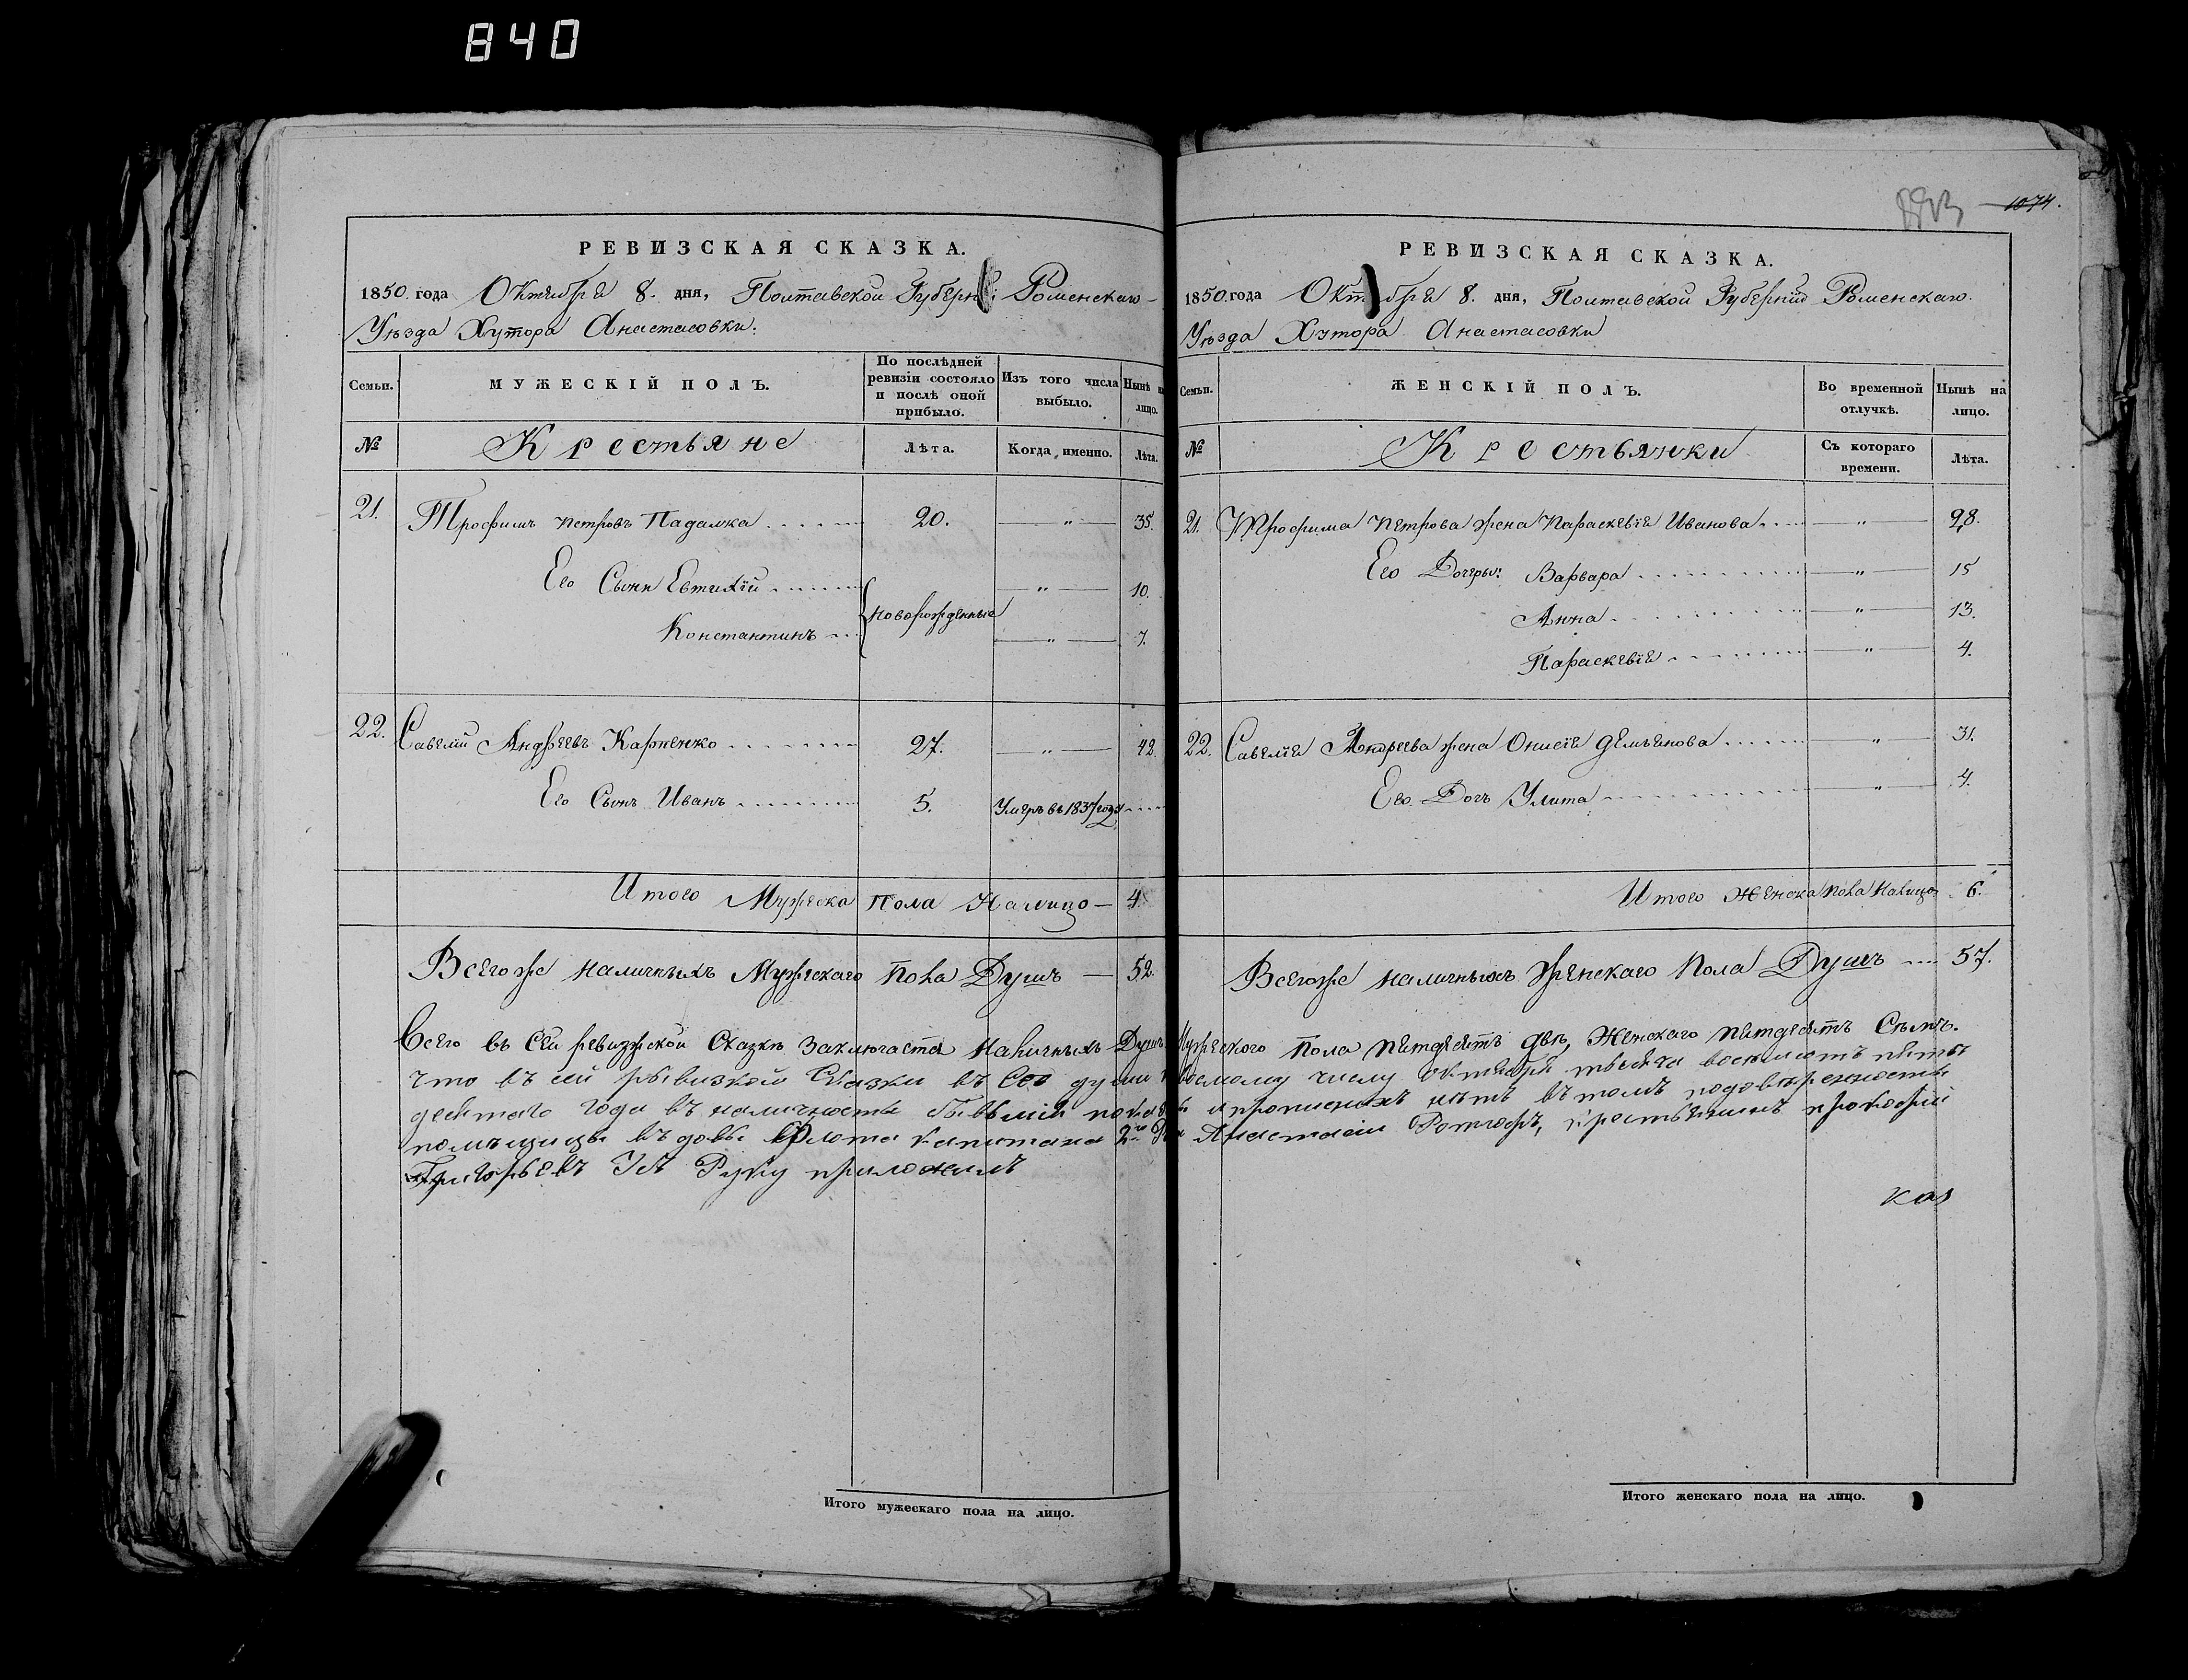 840
1074.
РЕВИЗСКАЯ СКАЗКА.
1850. года Октября 8. дня, Полтавской Губерніи Роменскаго
Уѣзда Хутора Анастасовки.
Семьи.
МУЖЕСКІЙ ПОЛЪ.
По послѣдней ревизіи состояло и послѣ оной прибыло.
Изъ того числа выбыло.
Нынѣ на лицо.
№
Крестьяне
Лѣта.
Когда именно.
Лѣта.
21. Трофимъ Петровъ Падалка 20. " 35.
Его Сыни Евтихій " 10.
новорожденные
Константинъ " 7.
22. Савелій Андреевъ Карпенко 27. " 42.
Его Сынъ Иванъ 5. Умеръ въ 1837 году
Итого Мужеска пола Налицо — 4
Всегоже наличныхъ Мужескаго пола Душъ — 52.
РЕВИЗСКАЯ СКАЗКА.
1850. года Октября 8. дня, Полтавской Губерніи Роменскаго.
Уѣзда Хутора Анастасовки
Семьи.
ЖЕНСКІЙ ПОЛЪ.
Во временной отлучкѣ.
Нынѣ на лицо.
№
Крестьянки
Съ котораго времени.
Лѣта.
21. Трофима Петрова жена Параскевія Иванова " 28.
Его Дочеры: Варвара " 15
Анна " 13.
Параскевія " 4.
22. Савелія Андреева жена Онисія Демьянова " 31.
Его Дочъ Улита " 4.
Итого Женска пола Налицо 6.
Всегоже наличныхъ Женскаго Пола Душъ 57.
Всего въ Сей ревизской Сказкѣ Заключаетя Наличныхъ Душъ Мужеского Пола пятдесятъ двѣ, Женскаго пятдесятъ Сѣмъ.
Что въ сей ревизкой Сказки въ Сео души восмому числу октября тысяча восимсотъ пять
десятаго года въ наличности бывьшія и прописнихъ нѣтъ въ томъ подовѣренности
помѣщицы въдовы Флота капитана 2го Анастасіи, крестьянинъ прокофій
Григорьевъ Руку приложилъ
Итого мужескаго пола на лицо.
Итого женскаго пола на лицо.